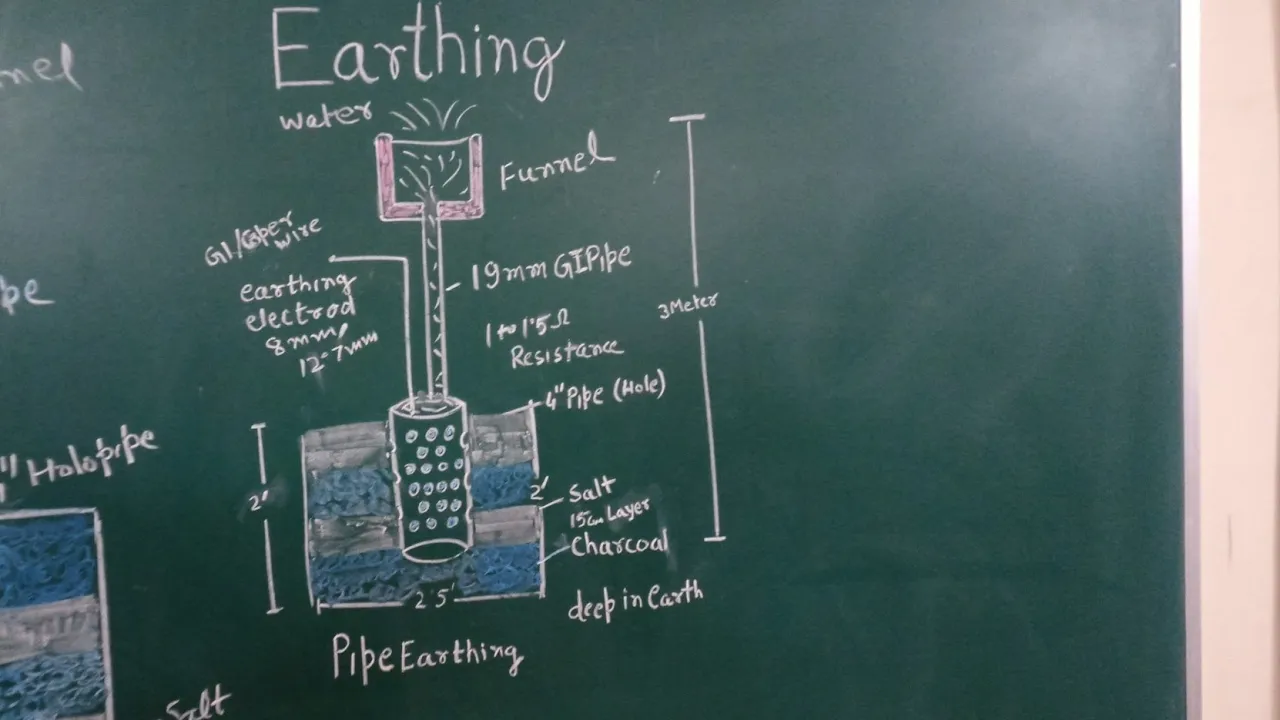 Earthing
water
Funnel
GI/Coper
wire
earthing
electrod
8mm/
12.7mm
19mm GI Pipe
1 to 1.5Ω
Resistance
3 Meter
4" Pipe (Hole)
2'
2'
Salt
15cm Layer
Charcoal
2.5'
deep in Earth
Pipe Earthing
nnel
pe
" Holopipe
Salt